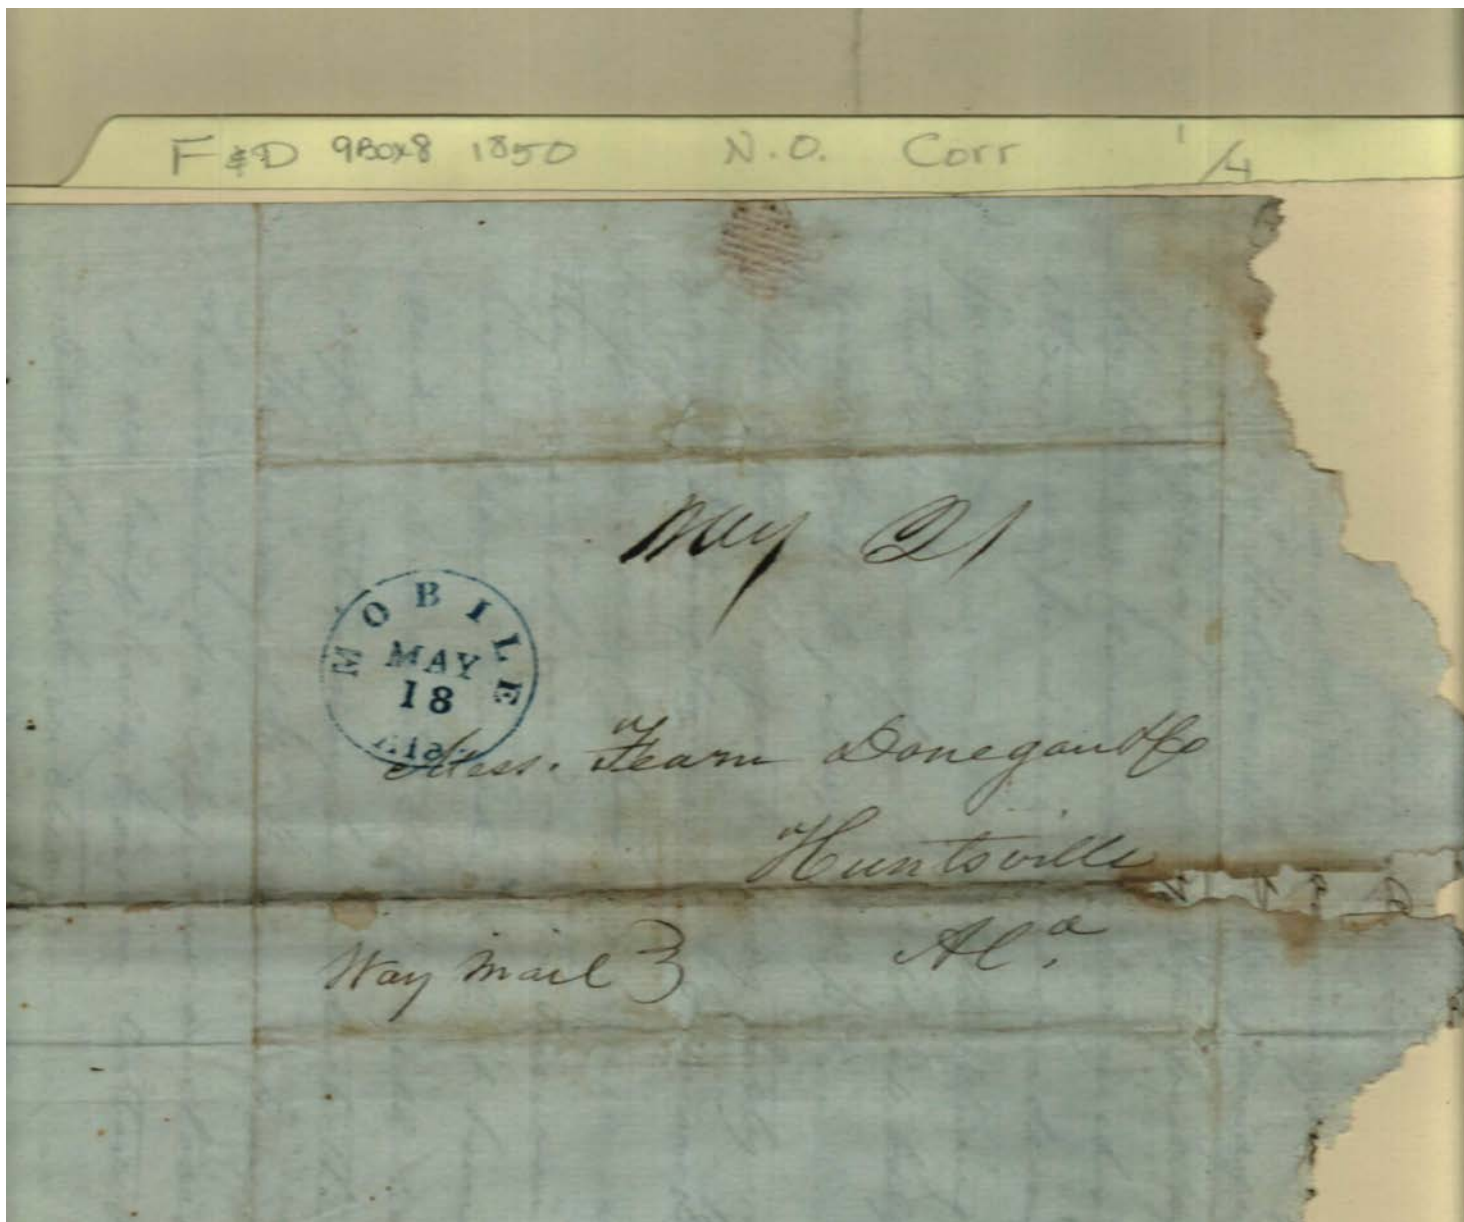 F & D 9Box8 1850 N.O. Corr 1/4
May 21
MOBILE
MAY
18
Ala
Mess. Fearn Donegan & Co
Huntsville
Ala.
Way Mail 3